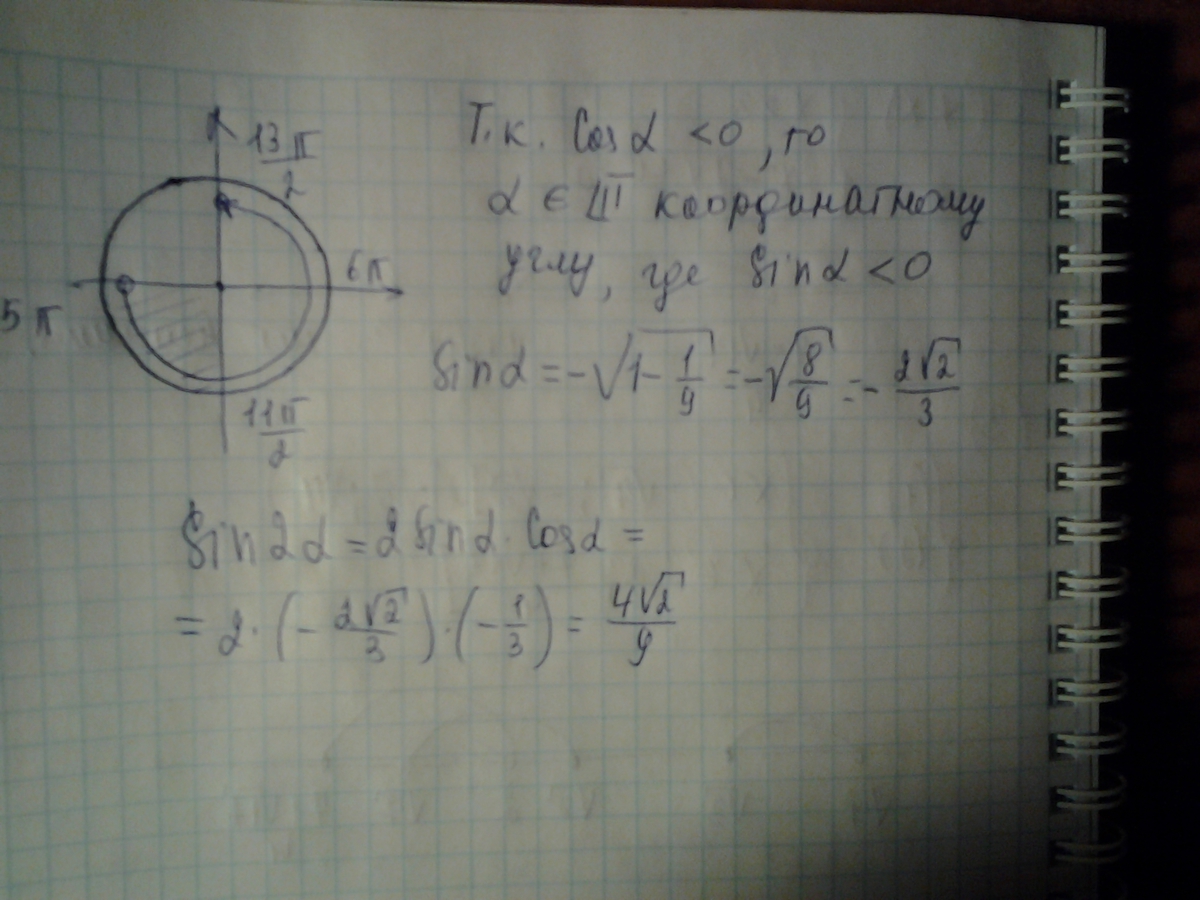 13π/2
Т.к. Cosα <0, то
α ∈ III координатному
углу, где Sinα <0
6π
5π
11π/2
Sinα = -√(1 - 1/9) = -√(8/9) = - 2√2/3
Sin2α = 2Sinα · Cosα =
= 2 · (- 2√2/3) · (- 1/3) = 4√2/9